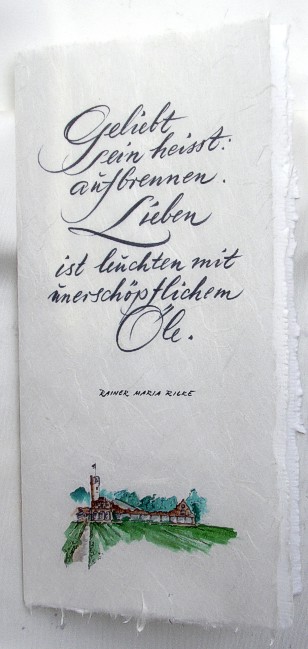 Geliebt
sein heisst:
aufbrennen.
Lieben
ist leuchten mit
unerschöpflichem
Öle.
RAINER MARIA RILKE